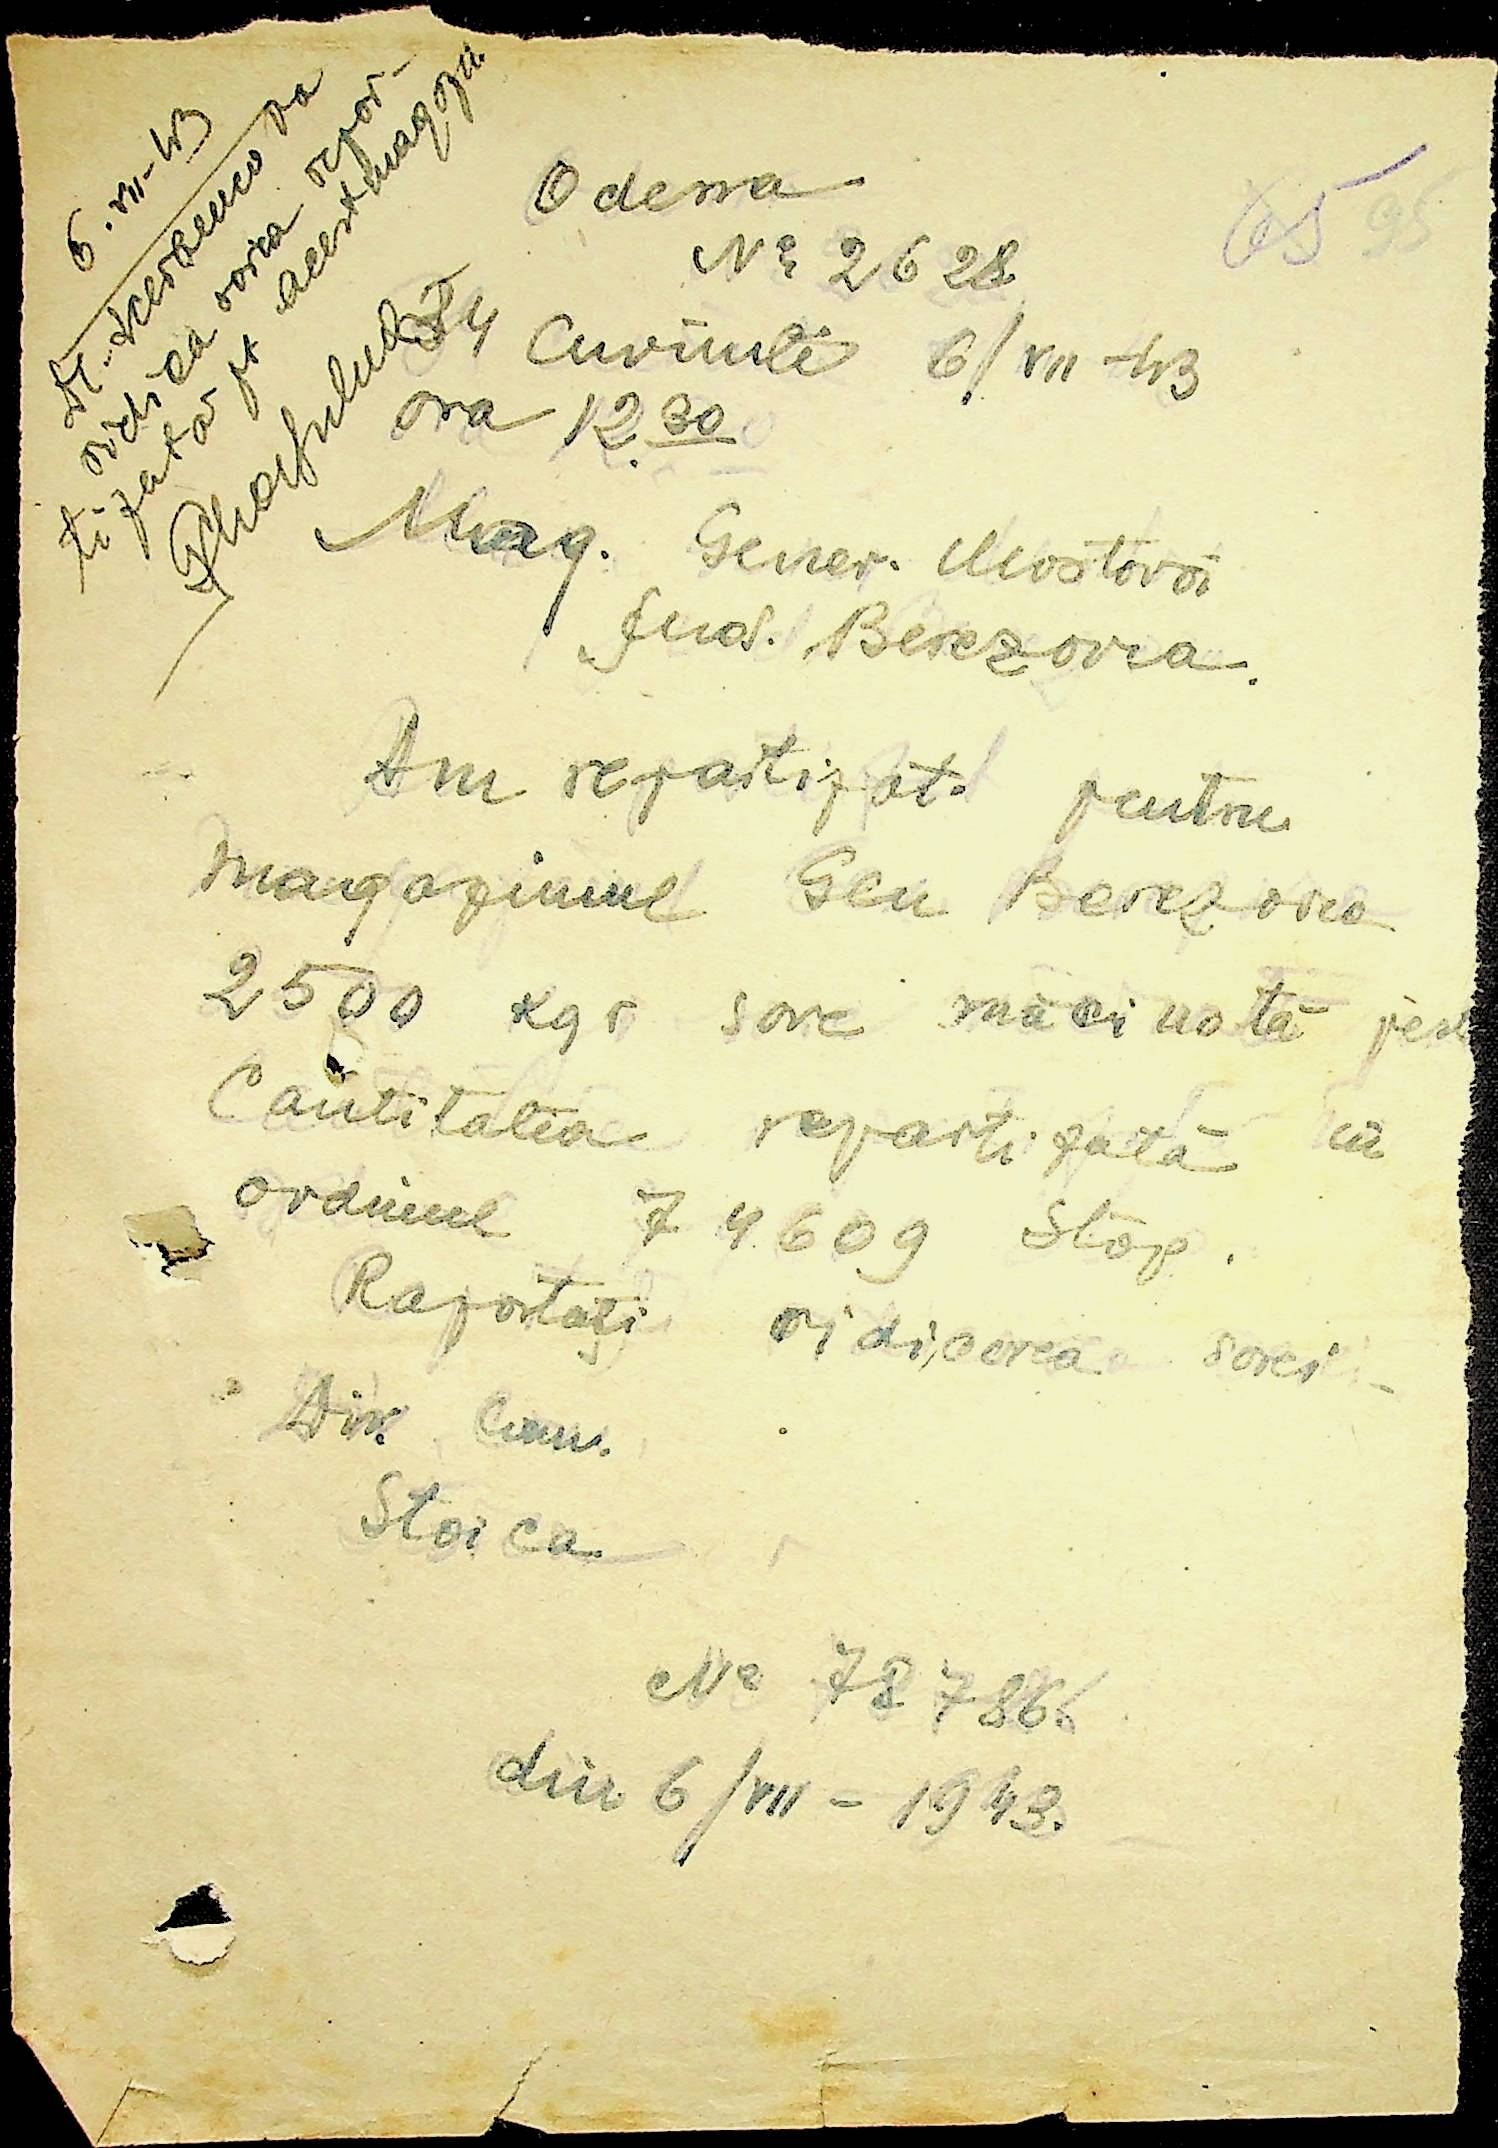 6.VII-43
va
ridica sorea repar-
tizată pt acest magazin.
65 95
Odessa
Nº 2628
34 Cuvinte 6/VII-43
ora 12.30
Mag. Gener. Mostovoi
Jud. Berezovca.
Am repartizat pentru
magazinul Gen Berezovca
2500 kgr sore măcinată peste
Cantitatea repartizată cu
ordinul 74609 Stop.
Raportaţi ridicarea sorei -
Dir. Com.
Stoica
Nº 78786
din 6/VII-1943.